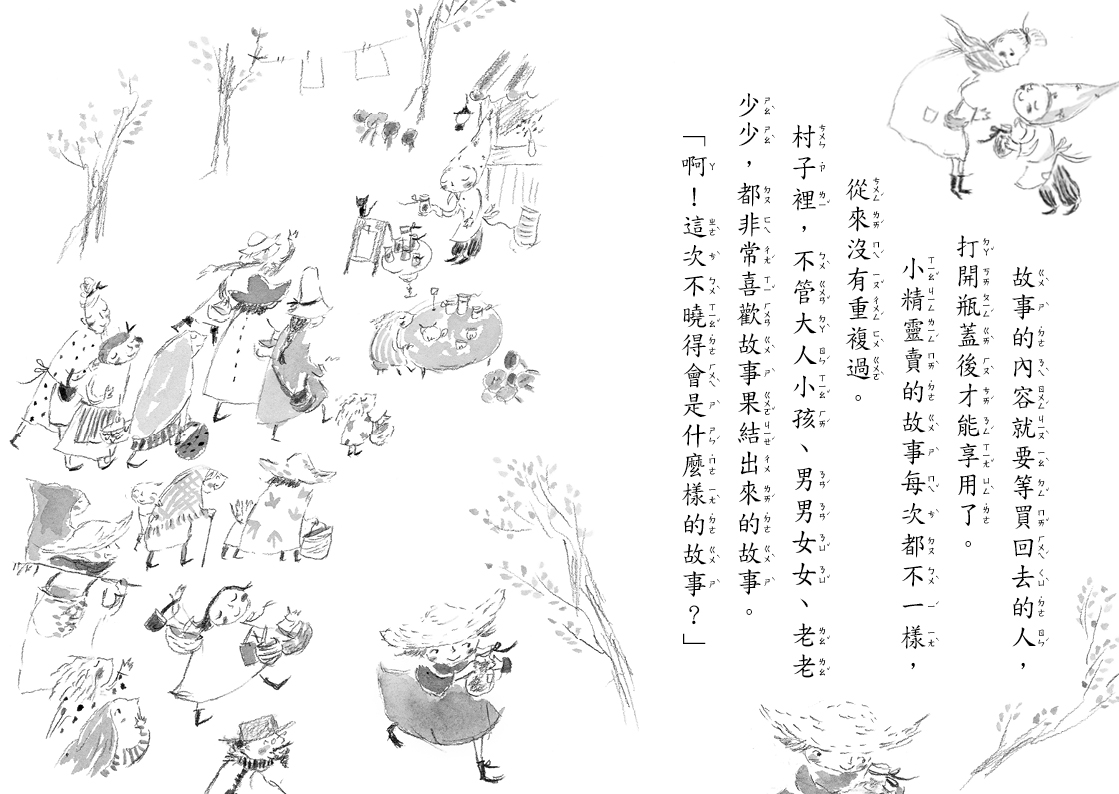 故事的內容就要等買回去的人，
打開瓶蓋後才能享用了。
小精靈賣的故事每次都不一樣，
從來沒有重複過。
村子裡，不管大人小孩、男男女女、老老
少少，都非常喜歡故事果結出來的故事。
「啊！這次不曉得會是什麼樣的故事？」